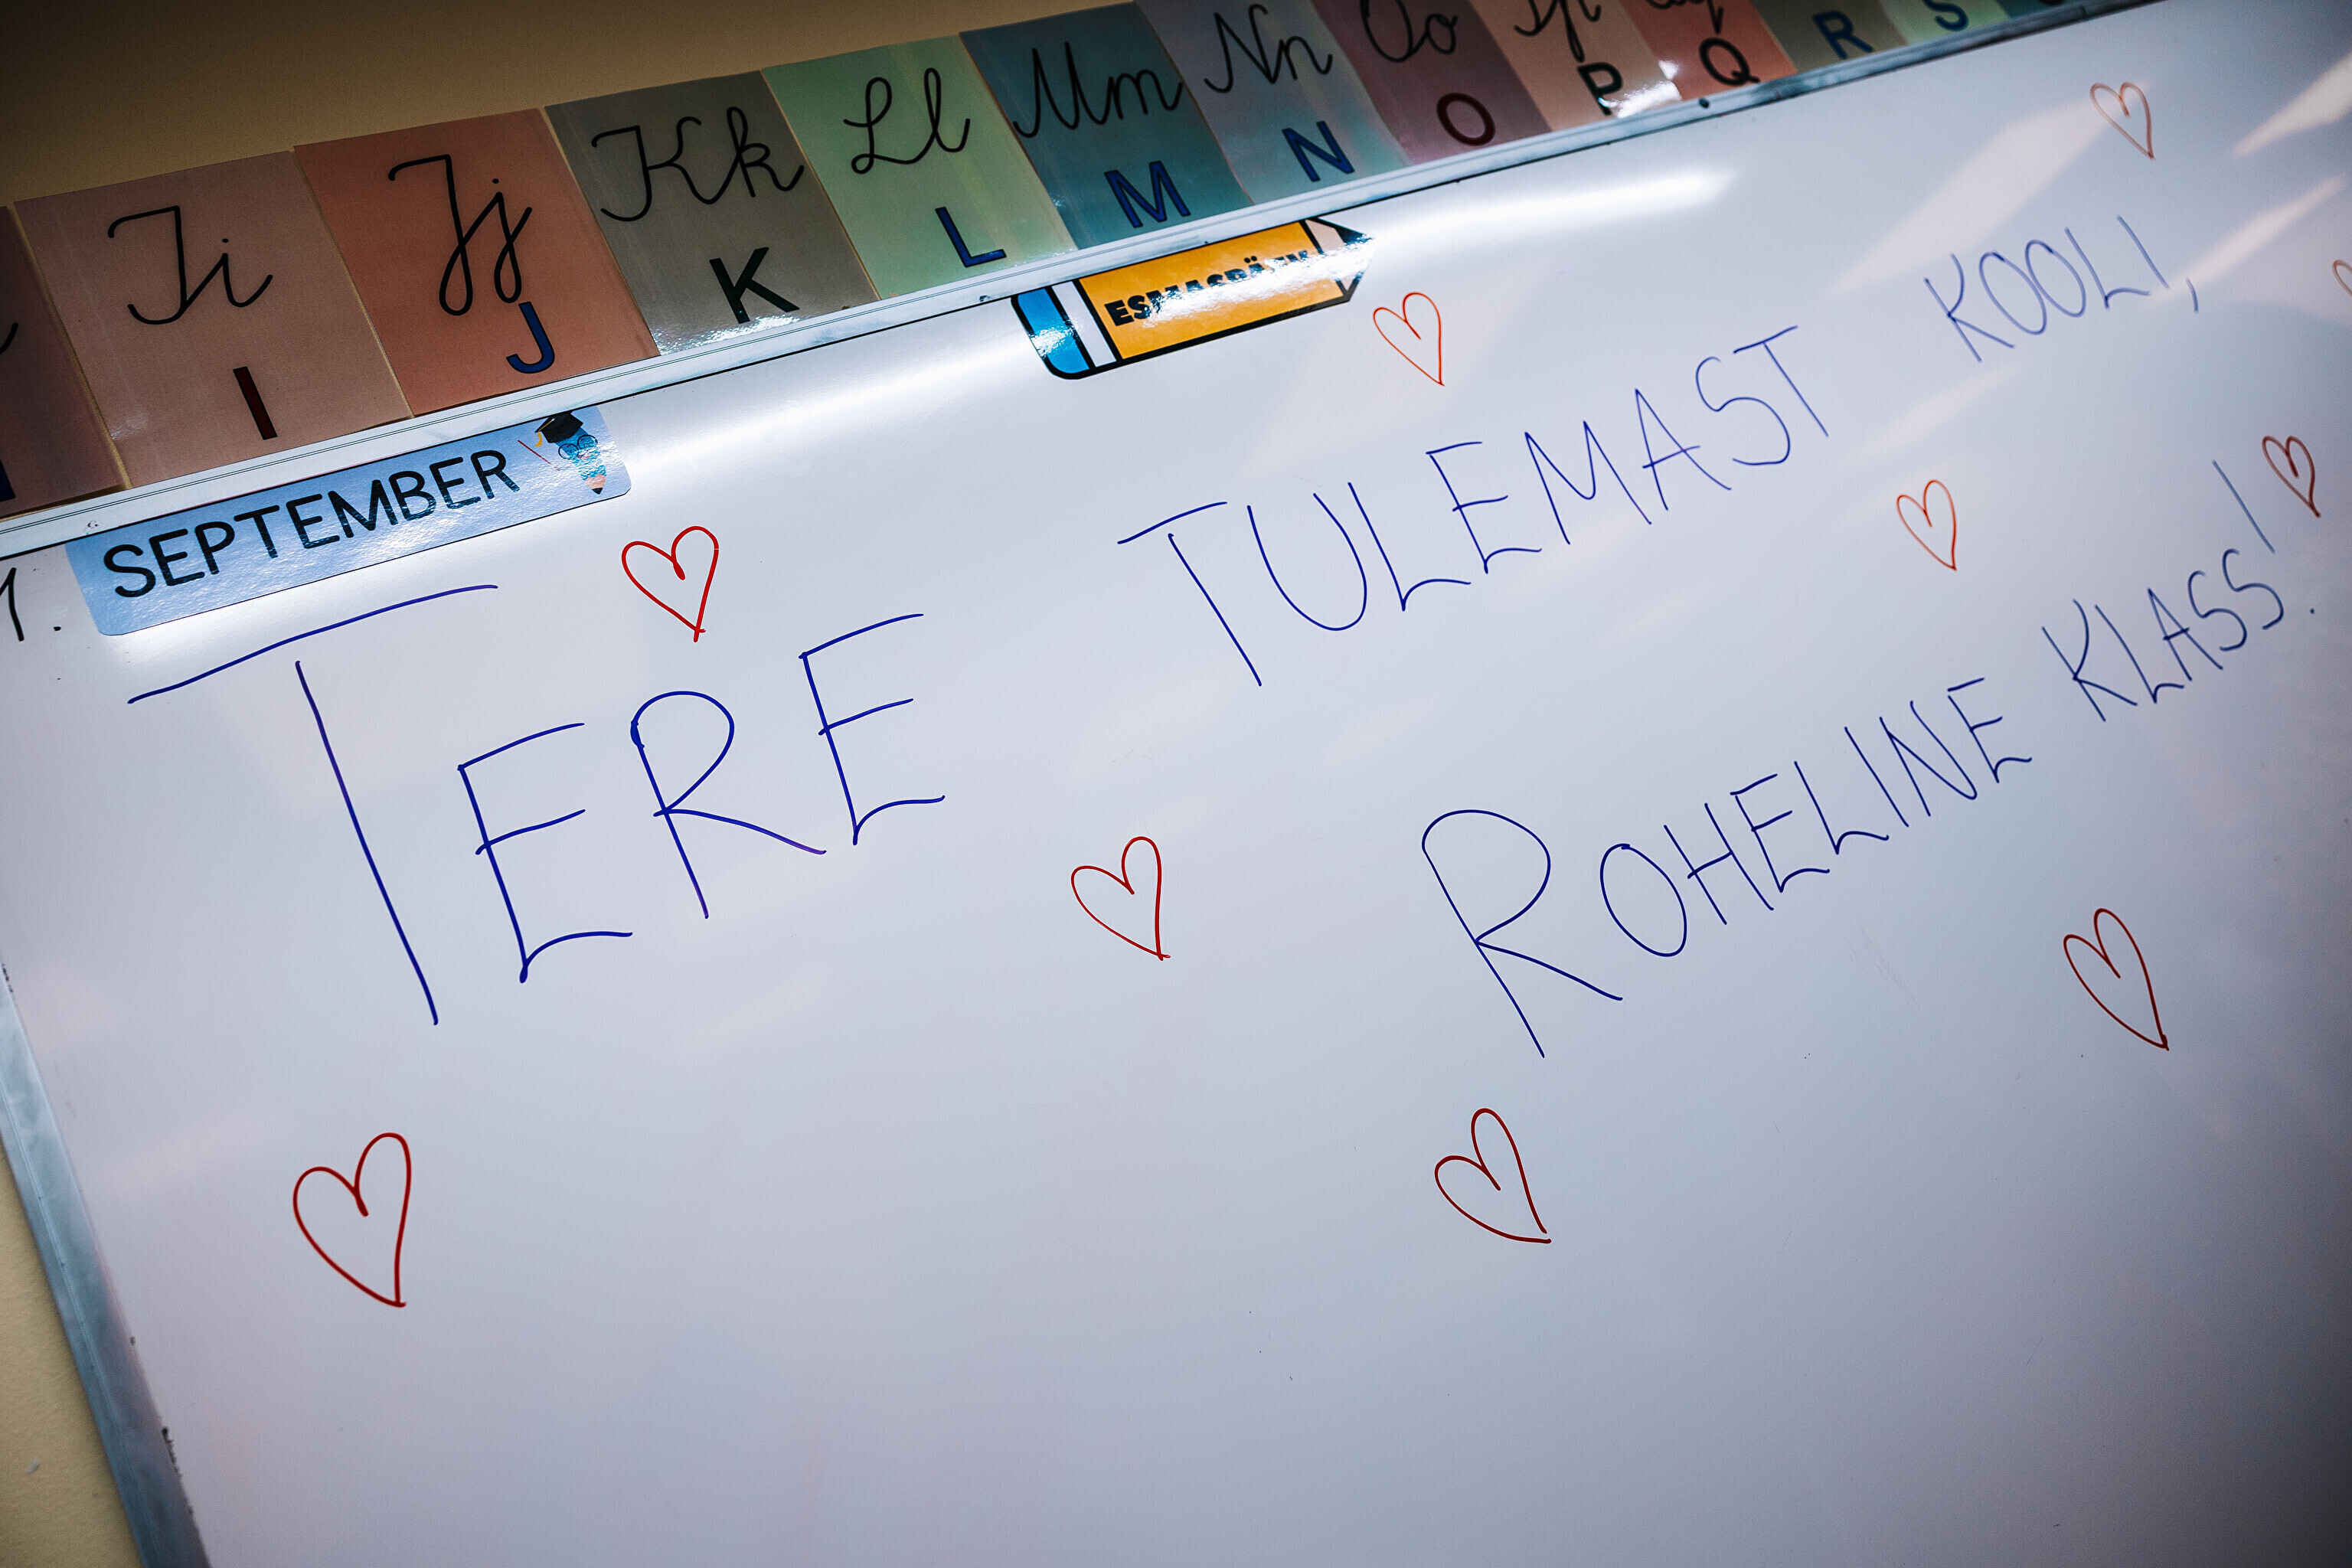 Ii Jj Kk Ll Mm Nn Oo Pp Qq
I J K L M N O P Q R S
ESMASPÄEV
1. SEPTEMBER
TERE TULEMAST KOOLI,
ROHELINE KLASS!